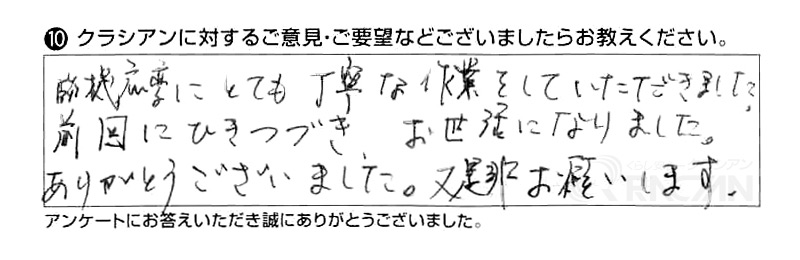 ⑩ クラシアンに対するご意見・ご要望などございましたらお教えください。
臨機応変にとても丁寧な作業をしていただきました。
前回にひきつづき、お世話になりました。
ありがとうございました。又是非お願いします。
アンケートにお答えいただき誠にありがとうございました。